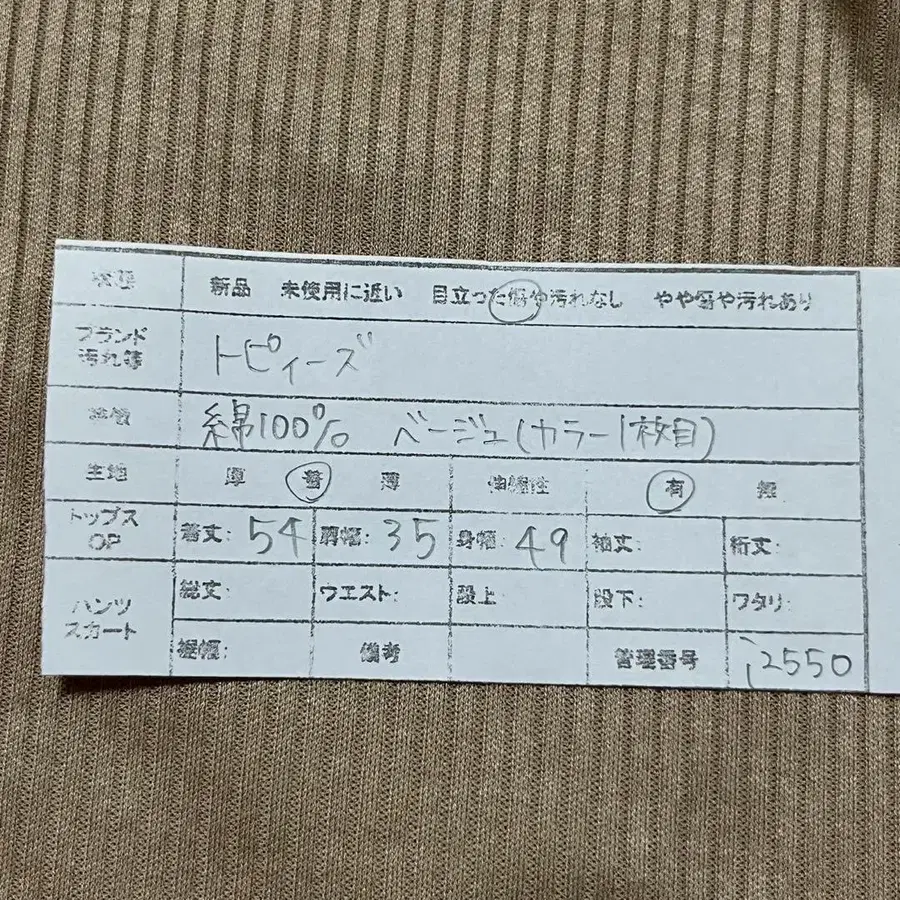 状態 新品 未使用に近い 目立った傷や汚れなし やや傷や汚れあり
ブランド
汚れ等
トピィーズ
綿100% ベージュ(カラー1枚目)
生地 厚 普 薄 伸縮性 有 無
トップス
OP
着丈: 54 肩幅: 35 身幅: 49 袖丈: 裄丈:
パンツ
スカート
総丈: ウエスト: 股上 股下: ワタリ:
裾幅: 備考 管理番号 i2550